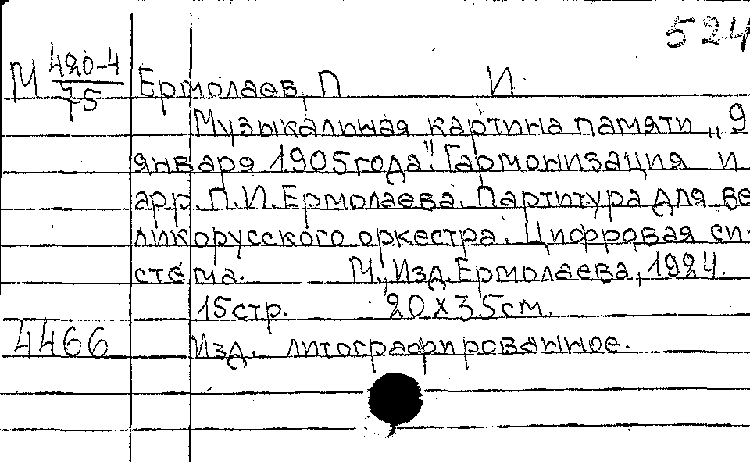 524
М 480-4 Ермолаев, П И.
75
Музыкальная картина памяти „9
января 1905 года". Гармонизация и
арр. П.И. Ермолаева. Партитура для ве
ликорусского оркестра. Цифровая си-
стема. М., Изд. Ермолаева, 1924.
15 стр. 20x35 см.
4466 Изд. литографированное.